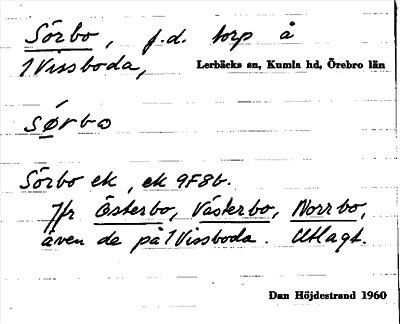 Sörbo, f.d. torp å
1 Vissboda, Lerbäcks sn, Kumla hd, Örebro län
Sörbo ek, ek 9F8b.
Jfr Österbo, Västerbo, Norrbo,
även de på 1 Vissboda. Utlagt.
Dan Höjdestrand 1960